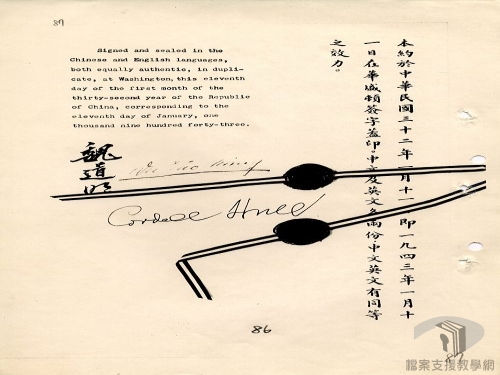 89
Signed and sealed in the
Chinese and English languages,
both equally authentic, in dupli-
cate, at Washington, this eleventh
day of the first month of the
thirty-second year of the Republic
of China, corresponding to the
eleventh day of January, one
thousand nine hundred forty-three.
本約於中華民國三十二年一月十一即一九四三年一月十
一日在華盛頓簽字蓋印中文及英文各兩份中文英文有同等
之效力。
魏道明
Wei Tao Ming
Cordell Hull
86
檔案支援教學網